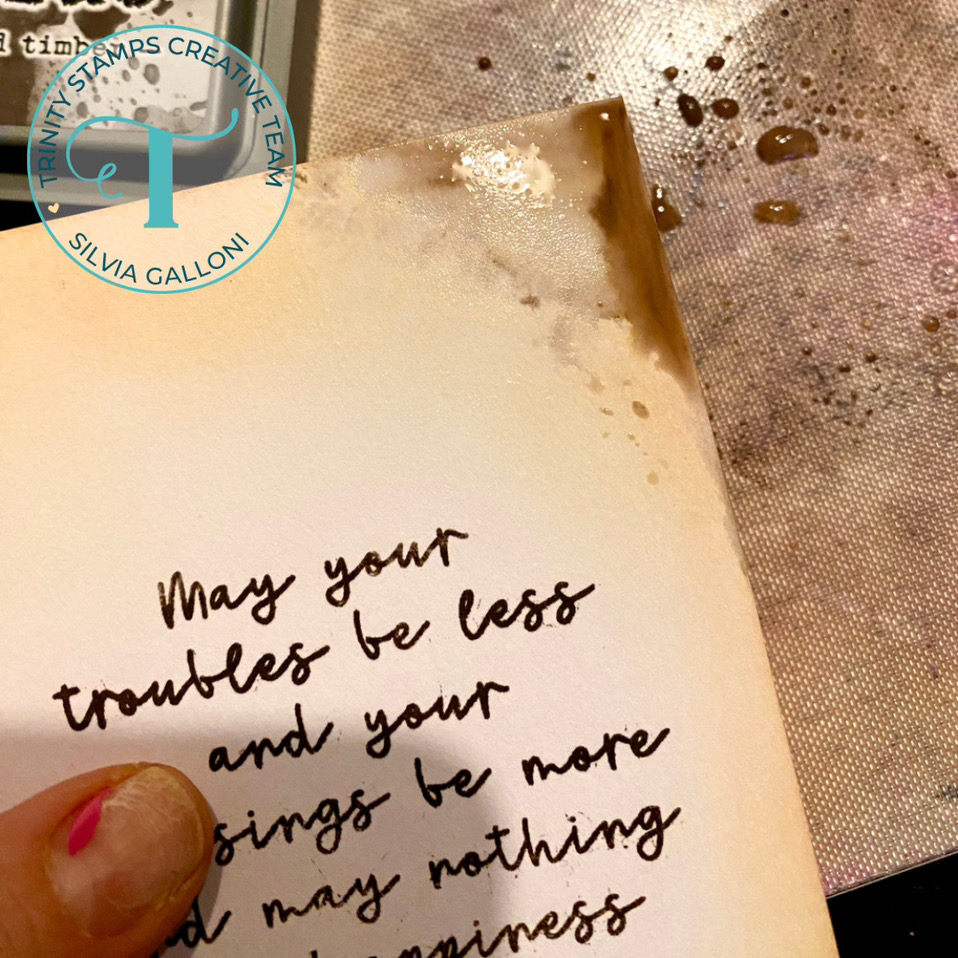 TRINITY STAMPS CREATIVE TEAM
T
SILVIA GALLONI
May your
troubles be less
and your
be more
may nothing